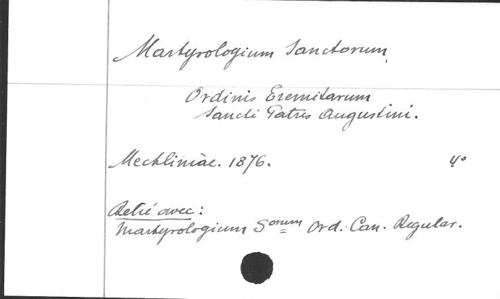 Martyrologium Sanctorum
Ordinis Eremitarum
Sancti Patris Augustini.
Mechliniae. 1876. 4°
Relié avec:
Martyrologium Sorum Ord. Can. Regular.